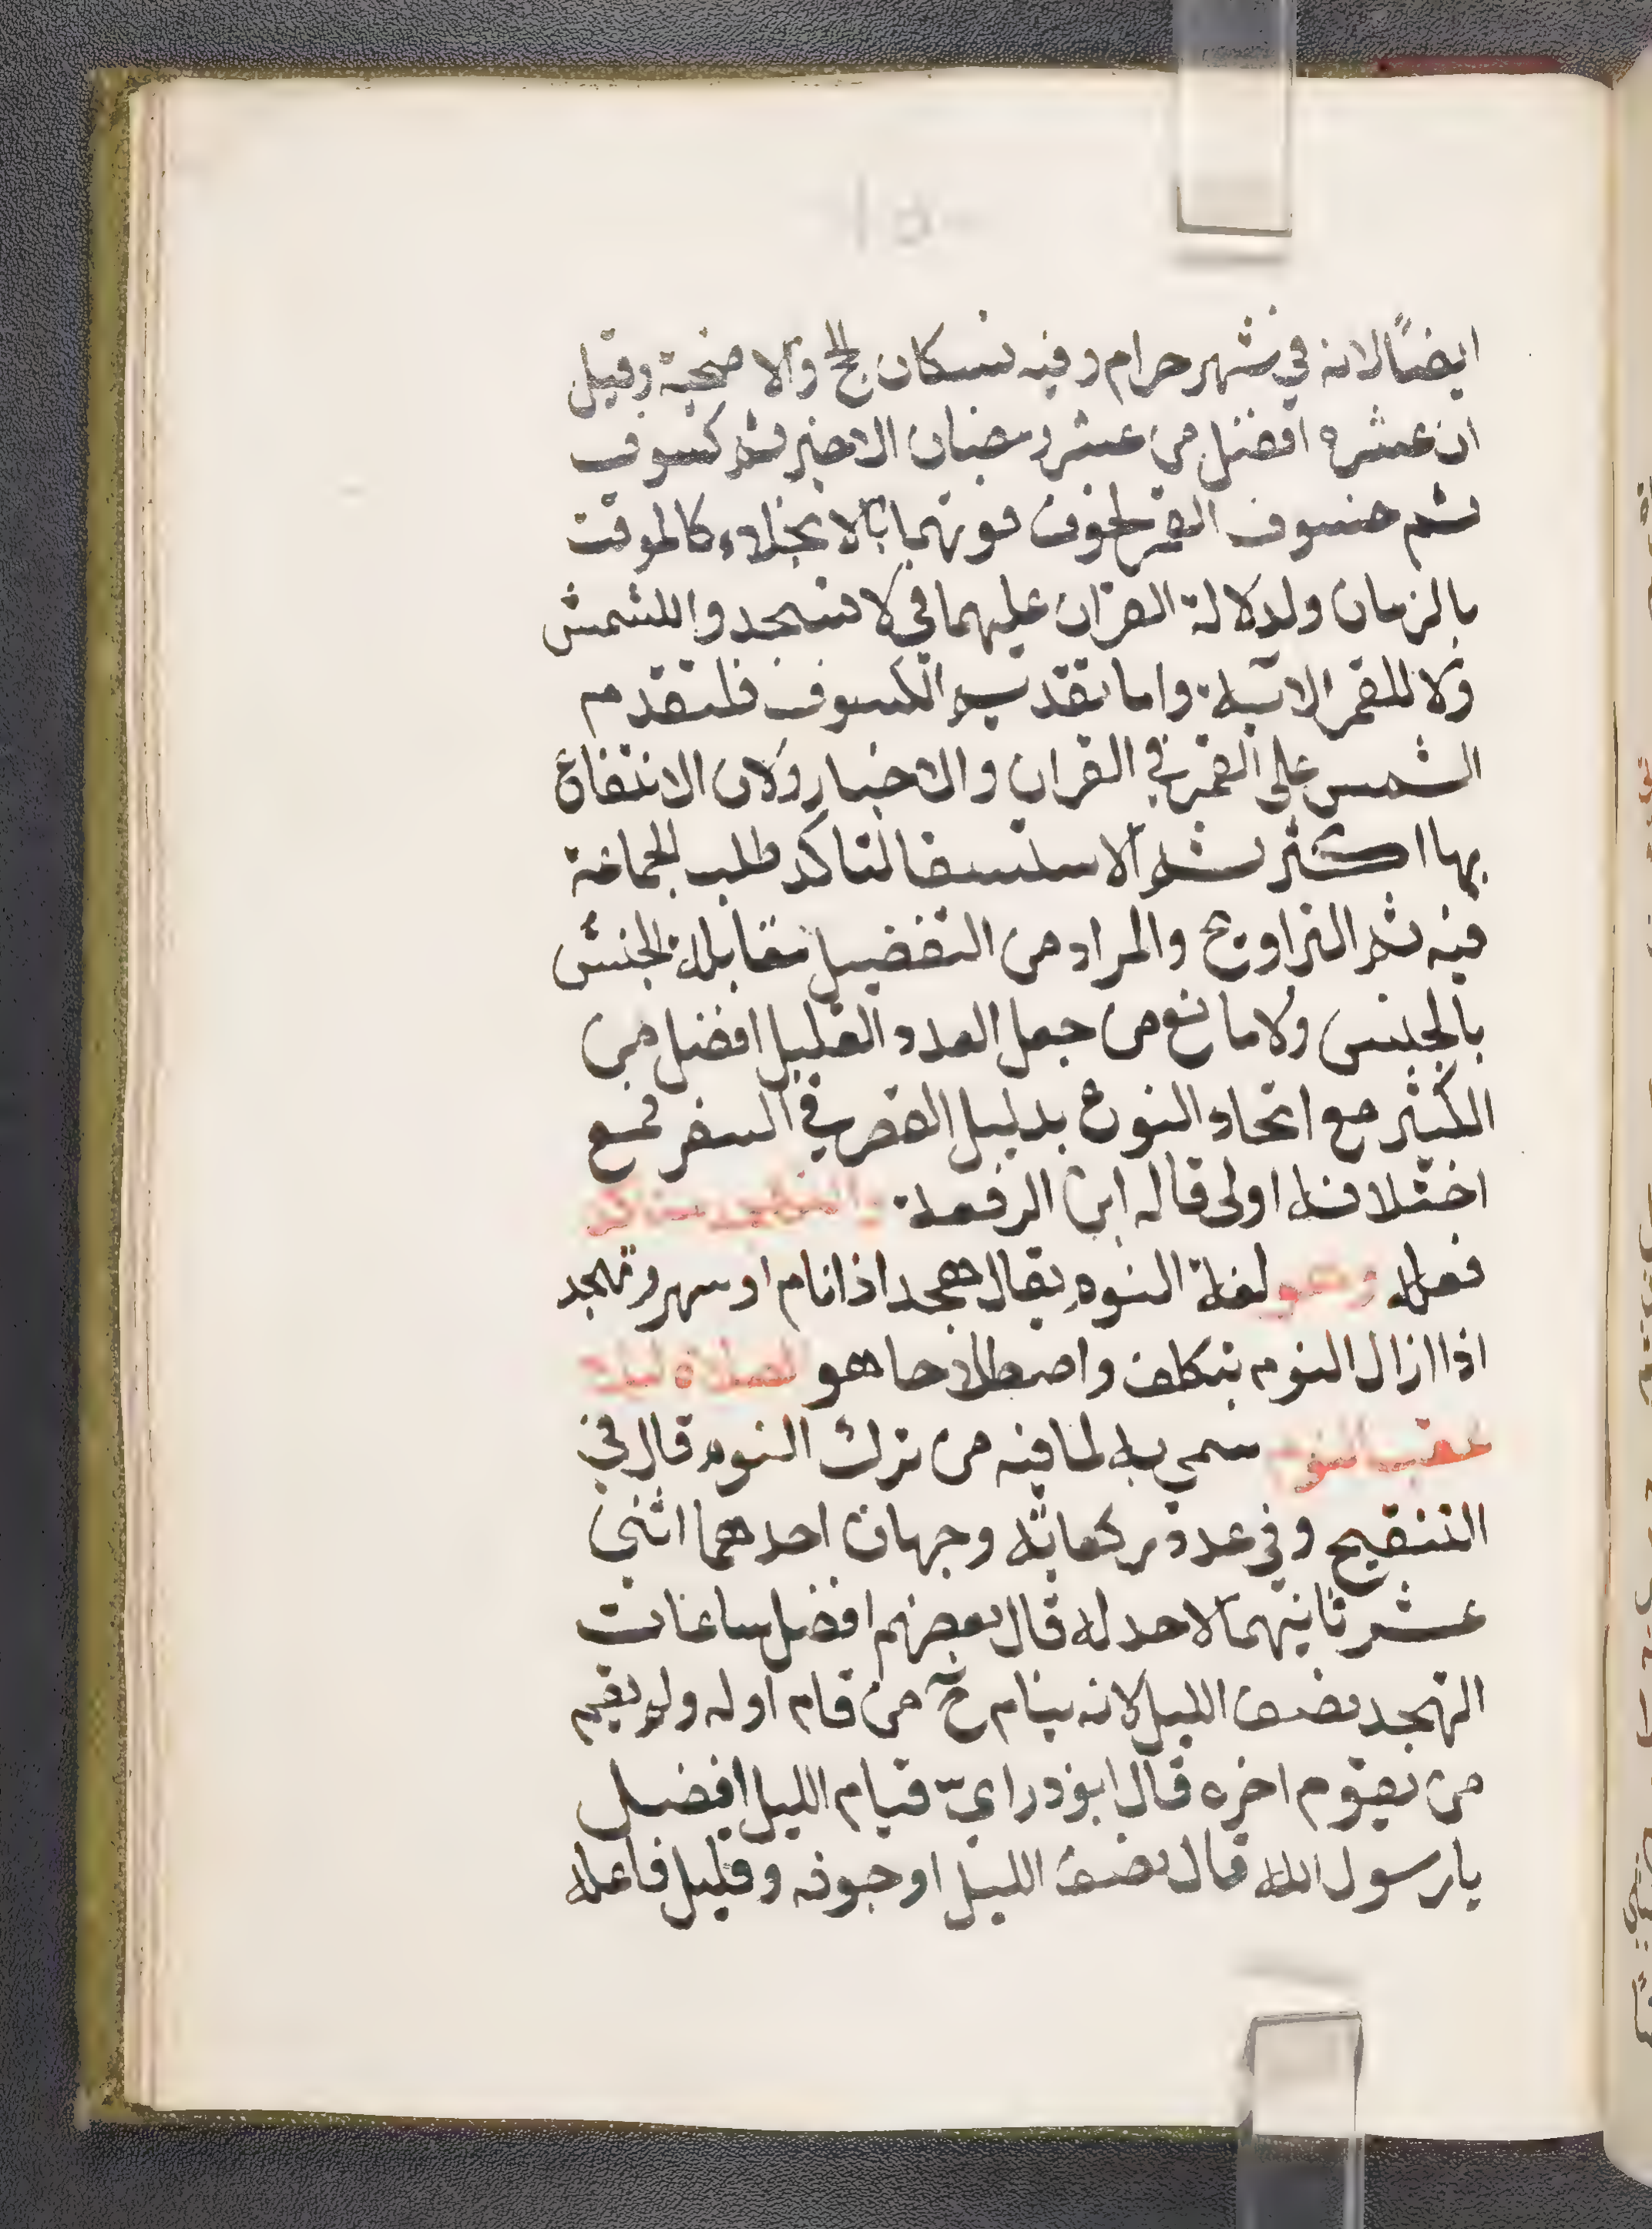 ايضًا لانه في شهر حرام وفيه نسكان الحج والاضحية وقيل
ان عشره افضل من عشر رمضان الاخير ثم كسوف
ثم خسوف القمر لخوف فوتهما بالانجلاء كالموقت
بالزمان ولدلالة القران عليهما في لا تسجدوا للشمس
ولا للقمر الاتية واما تقديم الكسوف فلتقدم
الشمس على القمر في القران والاخبار ولان الانتفاع
بها اكثر ثم الاستسقا لتاكد طلب الجماعة
فيه ثم التراويح والمراد من التفضيل مقابلة الجنس
بالجنس ولا مانع من جعل العدد القليل افضل من
الكثير مع اتحاد النوع بدليل القصر في السفر فمع
اختلافه اولى قاله ابن الرفعة والتهجد
فعله وهو لغة النوم يقال هجد اذا نام او سهر وتهجد
اذا ازال النوم بتكلف واصطلاحا هو الصلاة ليلا
عقب النوم سمي به لما فيه من ترك النوم قال في
التنقيح وفي عدد ركعاته وجهان احدهما اثني
عشر ثانيهما لاحد له قال بعضهم افضل ساعات
التهجد نصف الليل لانه ينام ح من قام اوله ولم يقم
من يقوم اخره قال ابوذر اي قيام الليل افضل
يا رسول الله قال نصف الليل او جوفه وقليل فاعله